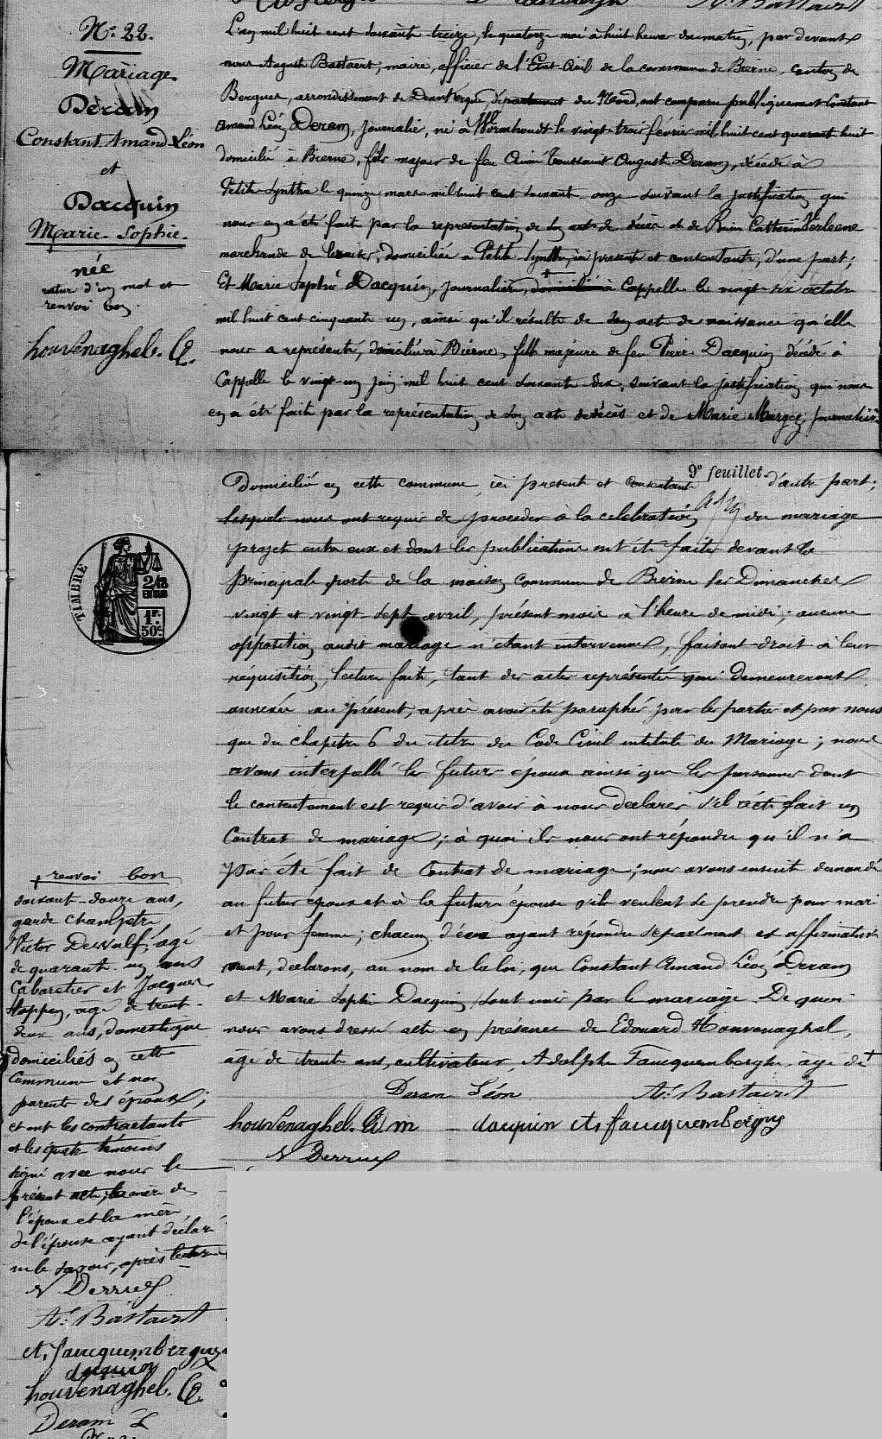 N° 22.
Mariage
Deram
Constant Amand Léon
et
Dacquin
Marie-Sophie.
née
ratur d'un mot et
renvoi bon.
houvenaghel. E.
L'an mil huit cent soixante treize, le quatorze mai à huit heures du matin, par devant
nous August Bastaert, maire, officier de l'Etat Civil de la commune de Bierne, canton de
Bergues, arrondissement de Dunkerque, département du Nord, ont comparu publiquement Constant
Amand Léon Deram, journalier, né à Wormhoudt le vingt-trois février mil huit cent quarante huit
domicilié à Bierne, fils majeur de feu Aimé Toussaint Auguste Deram, décédé à
Petite-Synthe le quinze mars mil huit cent soixante onze suivant la justification qui
nous en a été fait par la représentation de son act de décès et de Catherine Verleene
marchande de lacets, domiciliée à Petite Synthe, ici présente et consentante, d'une part;
Et Marie Sophie Dacquin, journalière, domiciliée à Cappelle le vingt-six octobre
mil huit cent cinquante un, ainsi qu'il résulte de son act de naissance qu'elle
nous a représenté, domiciliée à Bierne, fille majeure de feu Pierre Dacquin décédé à
Cappelle le vingt-un juin mil huit cent soixante-dix, suivant la justification qui nous
en a été faite par la représentation de son acte de décès et de Marie Margez, journalière
9e feuillet
Domiciliée en cette commune, ici présent et consentant d'autre part;
Lesquels nous ont requis de procéder à la célébration du mariage
projet entre eux et dont les publications ont été faites devant la
principale porte de la maison commune de Bierne les Dimanches
vingt et vingt-sept avril, présent mois à l'heure de midi; aucune
opposition audit mariage n'étant intervenue, faisant droit à leur
réquisition, lecture faite, tant des actes représentés qui demeureront
annexés au présent, après avoir été paraphés par les parties et par nous
que du chapitre 6 du titre du Code Civil intitulé du Mariage; nous
avons interpellé les futurs époux ainsi que les personnes dont
le consentement est requis d'avoir à nous declarer s'il a été fait un
Contrat de mariage; à quoi ils nous ont répondu qu'il n'a
pas été fait de Contrat de mariage; nous avons ensuite demandé
au futur époux et à la future épouse s'ils veulent se prendre pour mari
et pour femme; chacun d'eux ayant répondu séparément et affirmative
ment, déclarons, au nom de la loi, que Constant Amand Léon Deram
et Marie Sophie Dacquin, sont unis par le mariage. De quoi
nous avons dressé acte en présence de Edouard Houvenaghel,
âgé de trente ans, cultivateur, Adolphe Faucquembergue, age de +
Deram Léon A. Bastaert
houvenaghel. E. m dacquin A. faucquembergue
V Derruel
TIMBRE
2/10
EN SUS
1F.
50c.
+ renvoi bon
soixante-douze ans,
garde champêtre
Victor Dewulf, âgé
de quarante-un ans
Cabaretier et Jacques
Happey, âgé de trente-
deux ans, domestique
domiciliés en cette
Commune et non
parents des époux;
et ont les contractants
et les quatre témoins
signé avec nous le
présent acte, la mère de
l'époux et la mère
de l'épouse ayant déclaré
ne le savoir, après lecture
V Derruel
A. Bastaert
A. faucquembergue
dacquin
houvenaghel. E.
Deram L